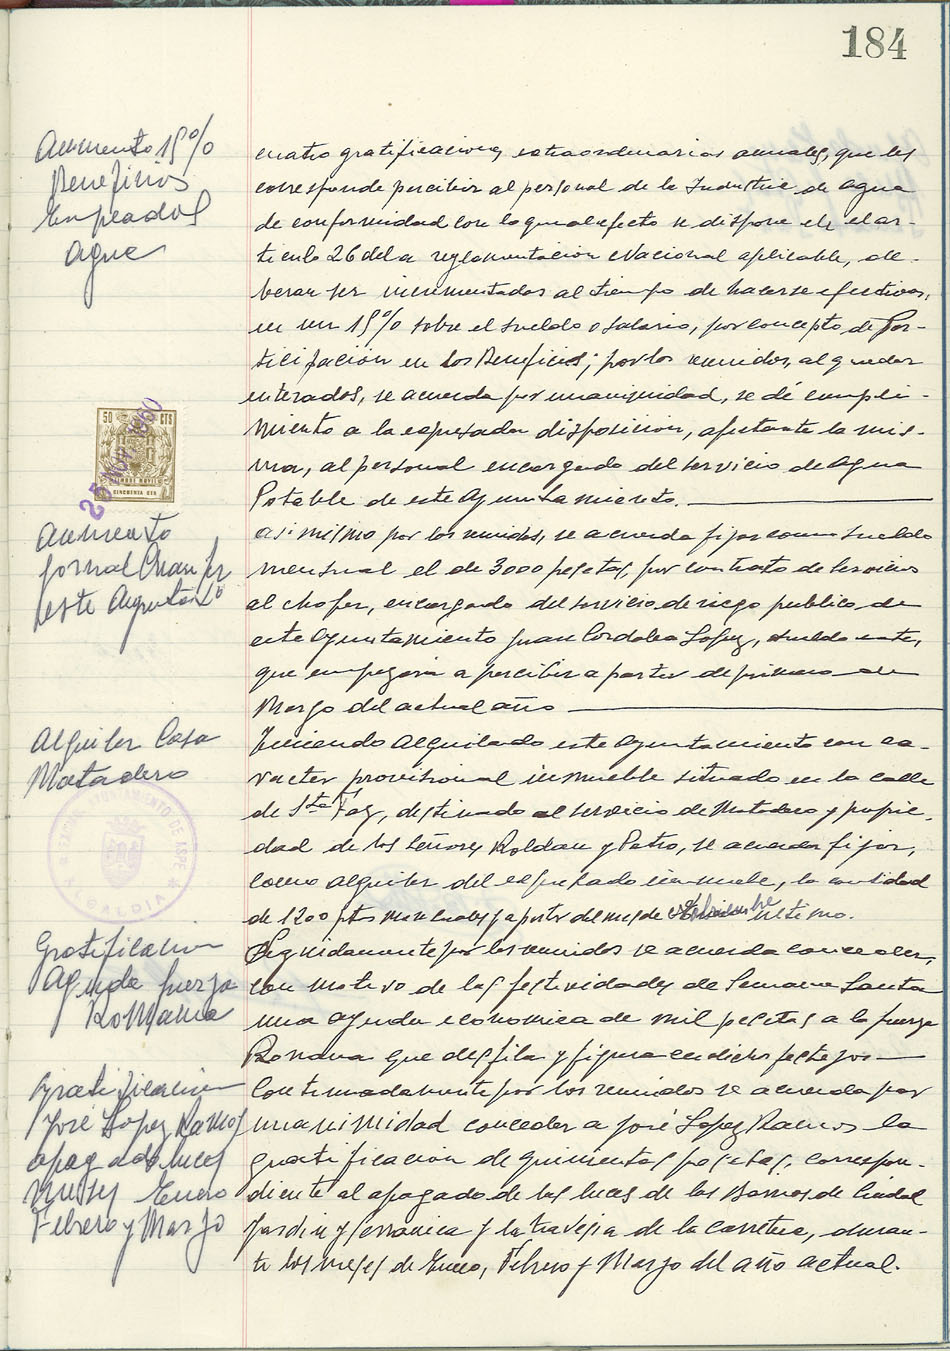 184
Aumento 15%
Beneficios
Empleados
agua
cuatro gratificaciones extraordinarias anuales, que les
corresponde percibir al personal de la Industria de agua
de conformidad con lo que al efecto se dispone el ar-
ticulo 26 de la reglamentación Nacional aplicable, de-
beran ser incrementados al tiempo de hacerse efectivas,
en un 15% sobre el sueldo o salario, por concepto de Par-
ticipación en los Beneficios; por los reunidos, al quedar
enterados, se acuerda por unanimidad, se dé cumpli-
miento a la expresada disposicion, afectante la mis-
ma, al personal encargado del servicio de Agua
Potable de este Ayuntamiento.
50 CTS
25 NOV 1960
CINCUENTA CTS
Aumento
jornal
este Ayuntamto
asi mismo por los reunidos, se acuerda fijar como sueldo
mensual el de 3000 pesetas, por contrato de servicios
al chofer, encargado del servicio de riego publico de
este Ayuntamiento Juan Cordoba Lopez, sueldo este,
que empezara a percibir a partir de primero de
Marzo del actual año
Alquiler Casa
Matadero
EXCMO. AYUNTAMIENTO DE ASPE
ALCALDIA
Teniendo alquilado este Ayuntamiento con ca-
racter provisional inmueble situado en la calle
de Sta Faz, destinado al servicio de Matadero y propie-
dad de los señores Roldan y Petro, se acuerda fijar,
como alquiler del expresado inmueble, la cantidad
de 1200 ptas mensuales y a partir del mes de ultimo.
Gratificacion
Ayuda fuerza
Romana
Seguidamente por los reunidos se acuerda conceder,
con motivo de las festividades de Semana Santa
una ayuda economica de mil pesetas a la fuerza
Romana que desfila y figura en dichos festejos
Gratificacion
José Lopez Ramos
apagado luces
meses Enero
Febrero y Marzo
Continuadamente por los reunidos se acuerda por
unanimidad conceder a José Lopez Ramos la
gratificacion de quinientas pesetas, correspon-
diente al apagado de las luces de los Barrios de Ciudad
Jardin y y la travesia de la carretera, duran-
te los meses de Enero, Febrero y Marzo del año actual.